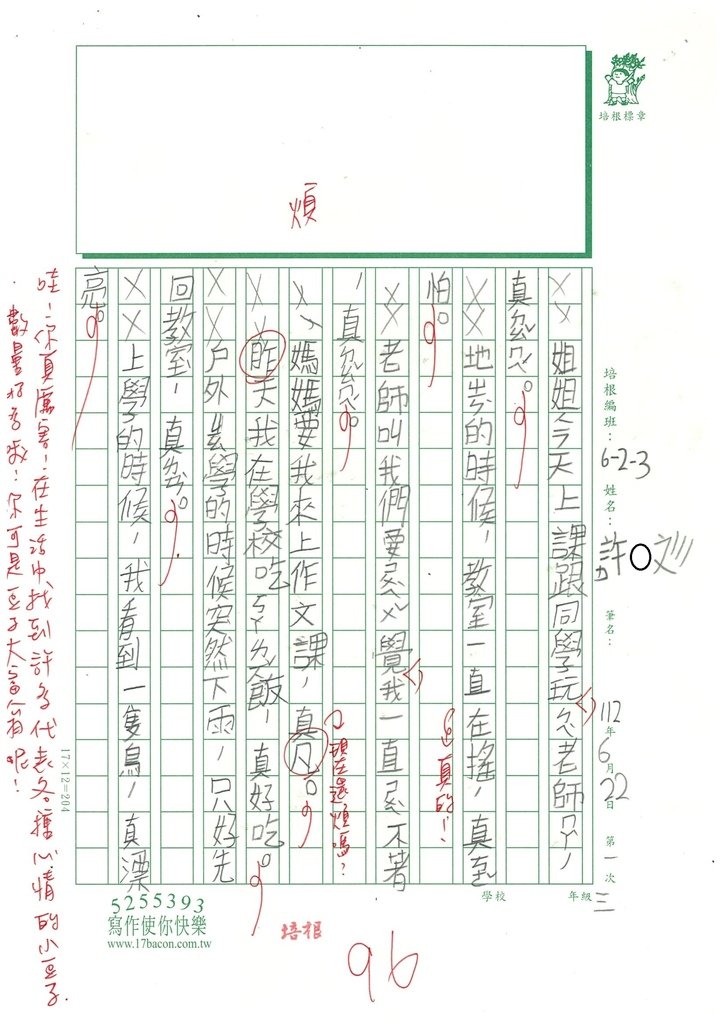 煩
培根標章
培根編班：6-2-3 姓名：許〇 筆名：
112年6月22日 第一次
學校 三年級
XX姐姐今天上課跟同學玩ㄣ老師ㄇㄚ，
真ㄣ。
XX地ㄓㄣ的時候，教室一直在搖，真
怕。
XX老師叫我們要ㄕㄨ覺我一直ㄕ不著
，真
X、媽媽要我來上作文課，真凡。
XX昨天我在學校吃ㄘㄚㄌ飯，真好吃。
XX戶外ㄐ學的時候突然下雨，只好先
回教室，真。
XX上學的時候，我看到一隻鳥，真漂
亮。
真的！
現在還煩嗎？
哇！你真厲害！在生活中找到許多代表各種心情的小豆子，
數量好多哦！你可是豆子大富翁呢！
17×12=204
5255393
寫作使你快樂
www.17bacon.com.tw
培根
96